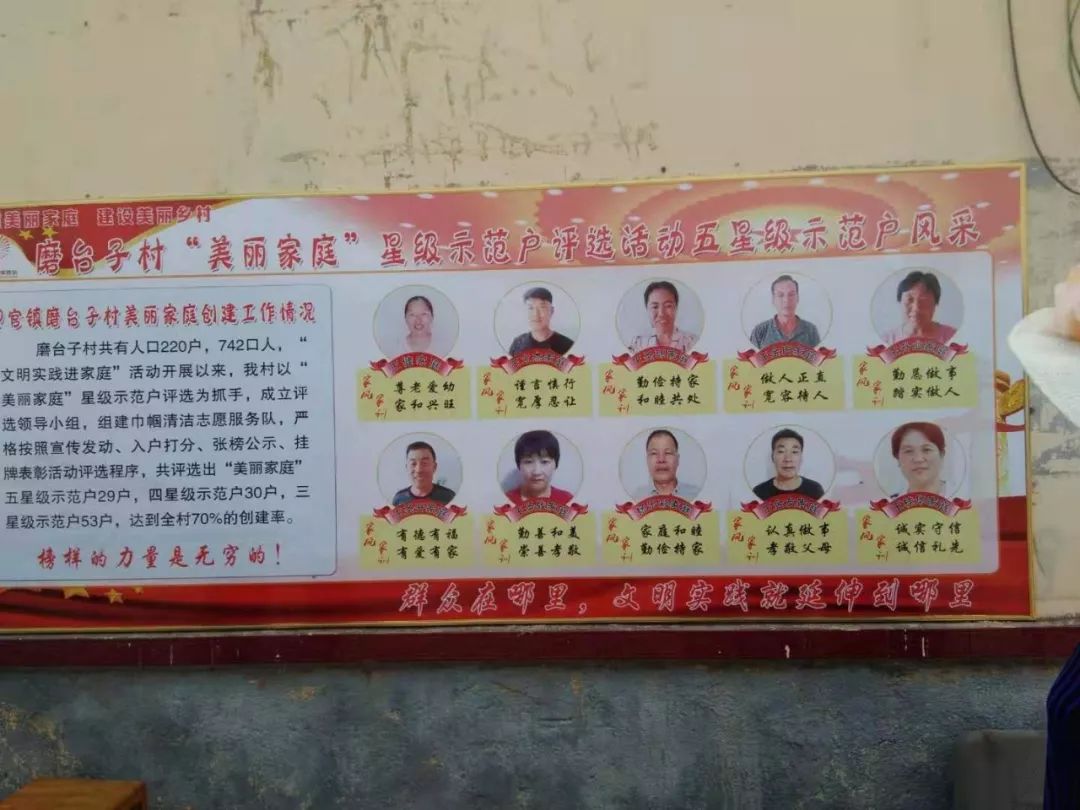 美丽家庭 建设美丽乡村
磨台子村“美丽家庭”星级示范户评选活动五星级示范户风采
官镇磨台子村美丽家庭创建工作情况
磨台子村共有人口220户，742口人，“
文明实践进家庭”活动开展以来，我村以“
美丽家庭”星级示范户评选为抓手，成立评
选领导小组，组建巾帼清洁志愿服务队，严
格按照宣传发动、入户打分、张榜公示、挂
牌表彰活动评选程序，共评选出“美丽家庭”
五星级示范户29户，四星级示范户30户，三
星级示范户53户，达到全村70%的创建率。
榜样的力量是无穷的！
家风家训
尊老爱幼
家和兴旺
家风家训
谨言慎行
宽厚忍让
家风家训
勤俭持家
和睦共处
家风家训
做人正直
宽容待人
家风家训
勤恳做事
踏实做人
家风家训
有德有福
有爱有家
家风家训
勤善和美
崇善孝敬
家风家训
家庭和睦
勤俭持家
家风家训
认真做事
孝敬父母
家风家训
诚实守信
诚信礼先
群众在哪里，文明实践就延伸到哪里